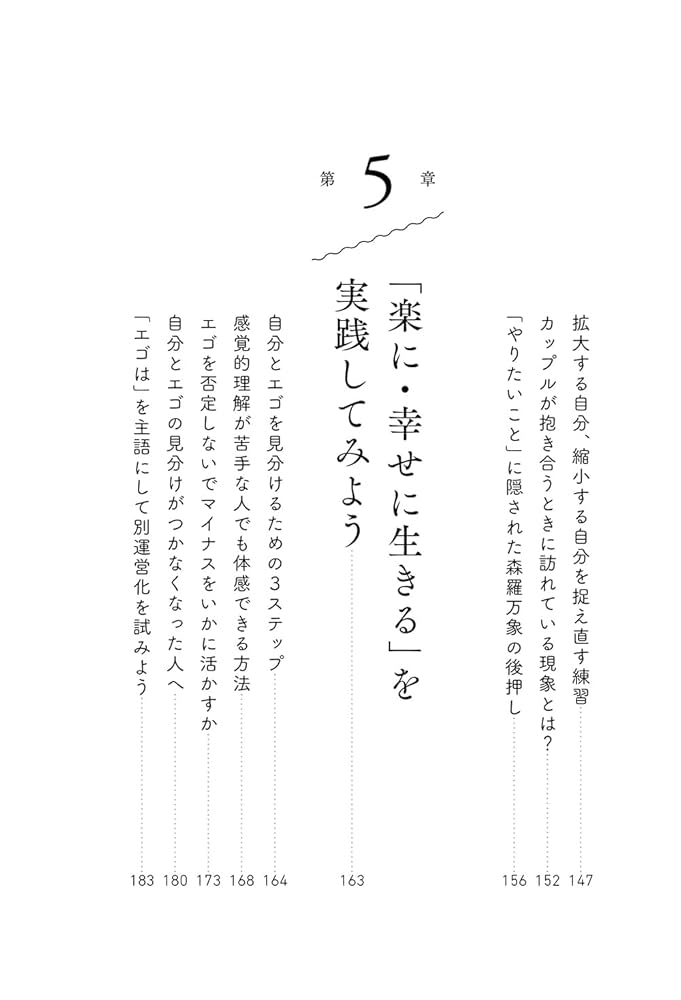 拡大する自分、縮小する自分を捉え直す練習 147
カップルが抱き合うときに訪れている現象とは? 152
「やりたいこと」に隠された森羅万象の後押し 156
第5章
「楽に・幸せに生きる」を
実践してみよう 163
自分とエゴを見分けるための3ステップ 164
感覚的理解が苦手な人でも体感できる方法 168
エゴを否定しないでマイナスをいかに活かすか 173
自分とエゴの見分けがつかなくなった人へ 180
「エゴは」を主語にして別運営化を試みよう 183